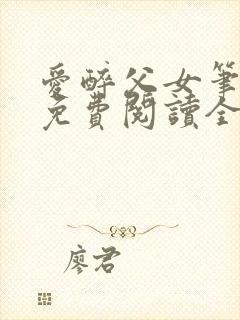 愛醉父女筆
免費閱讀全
廖君